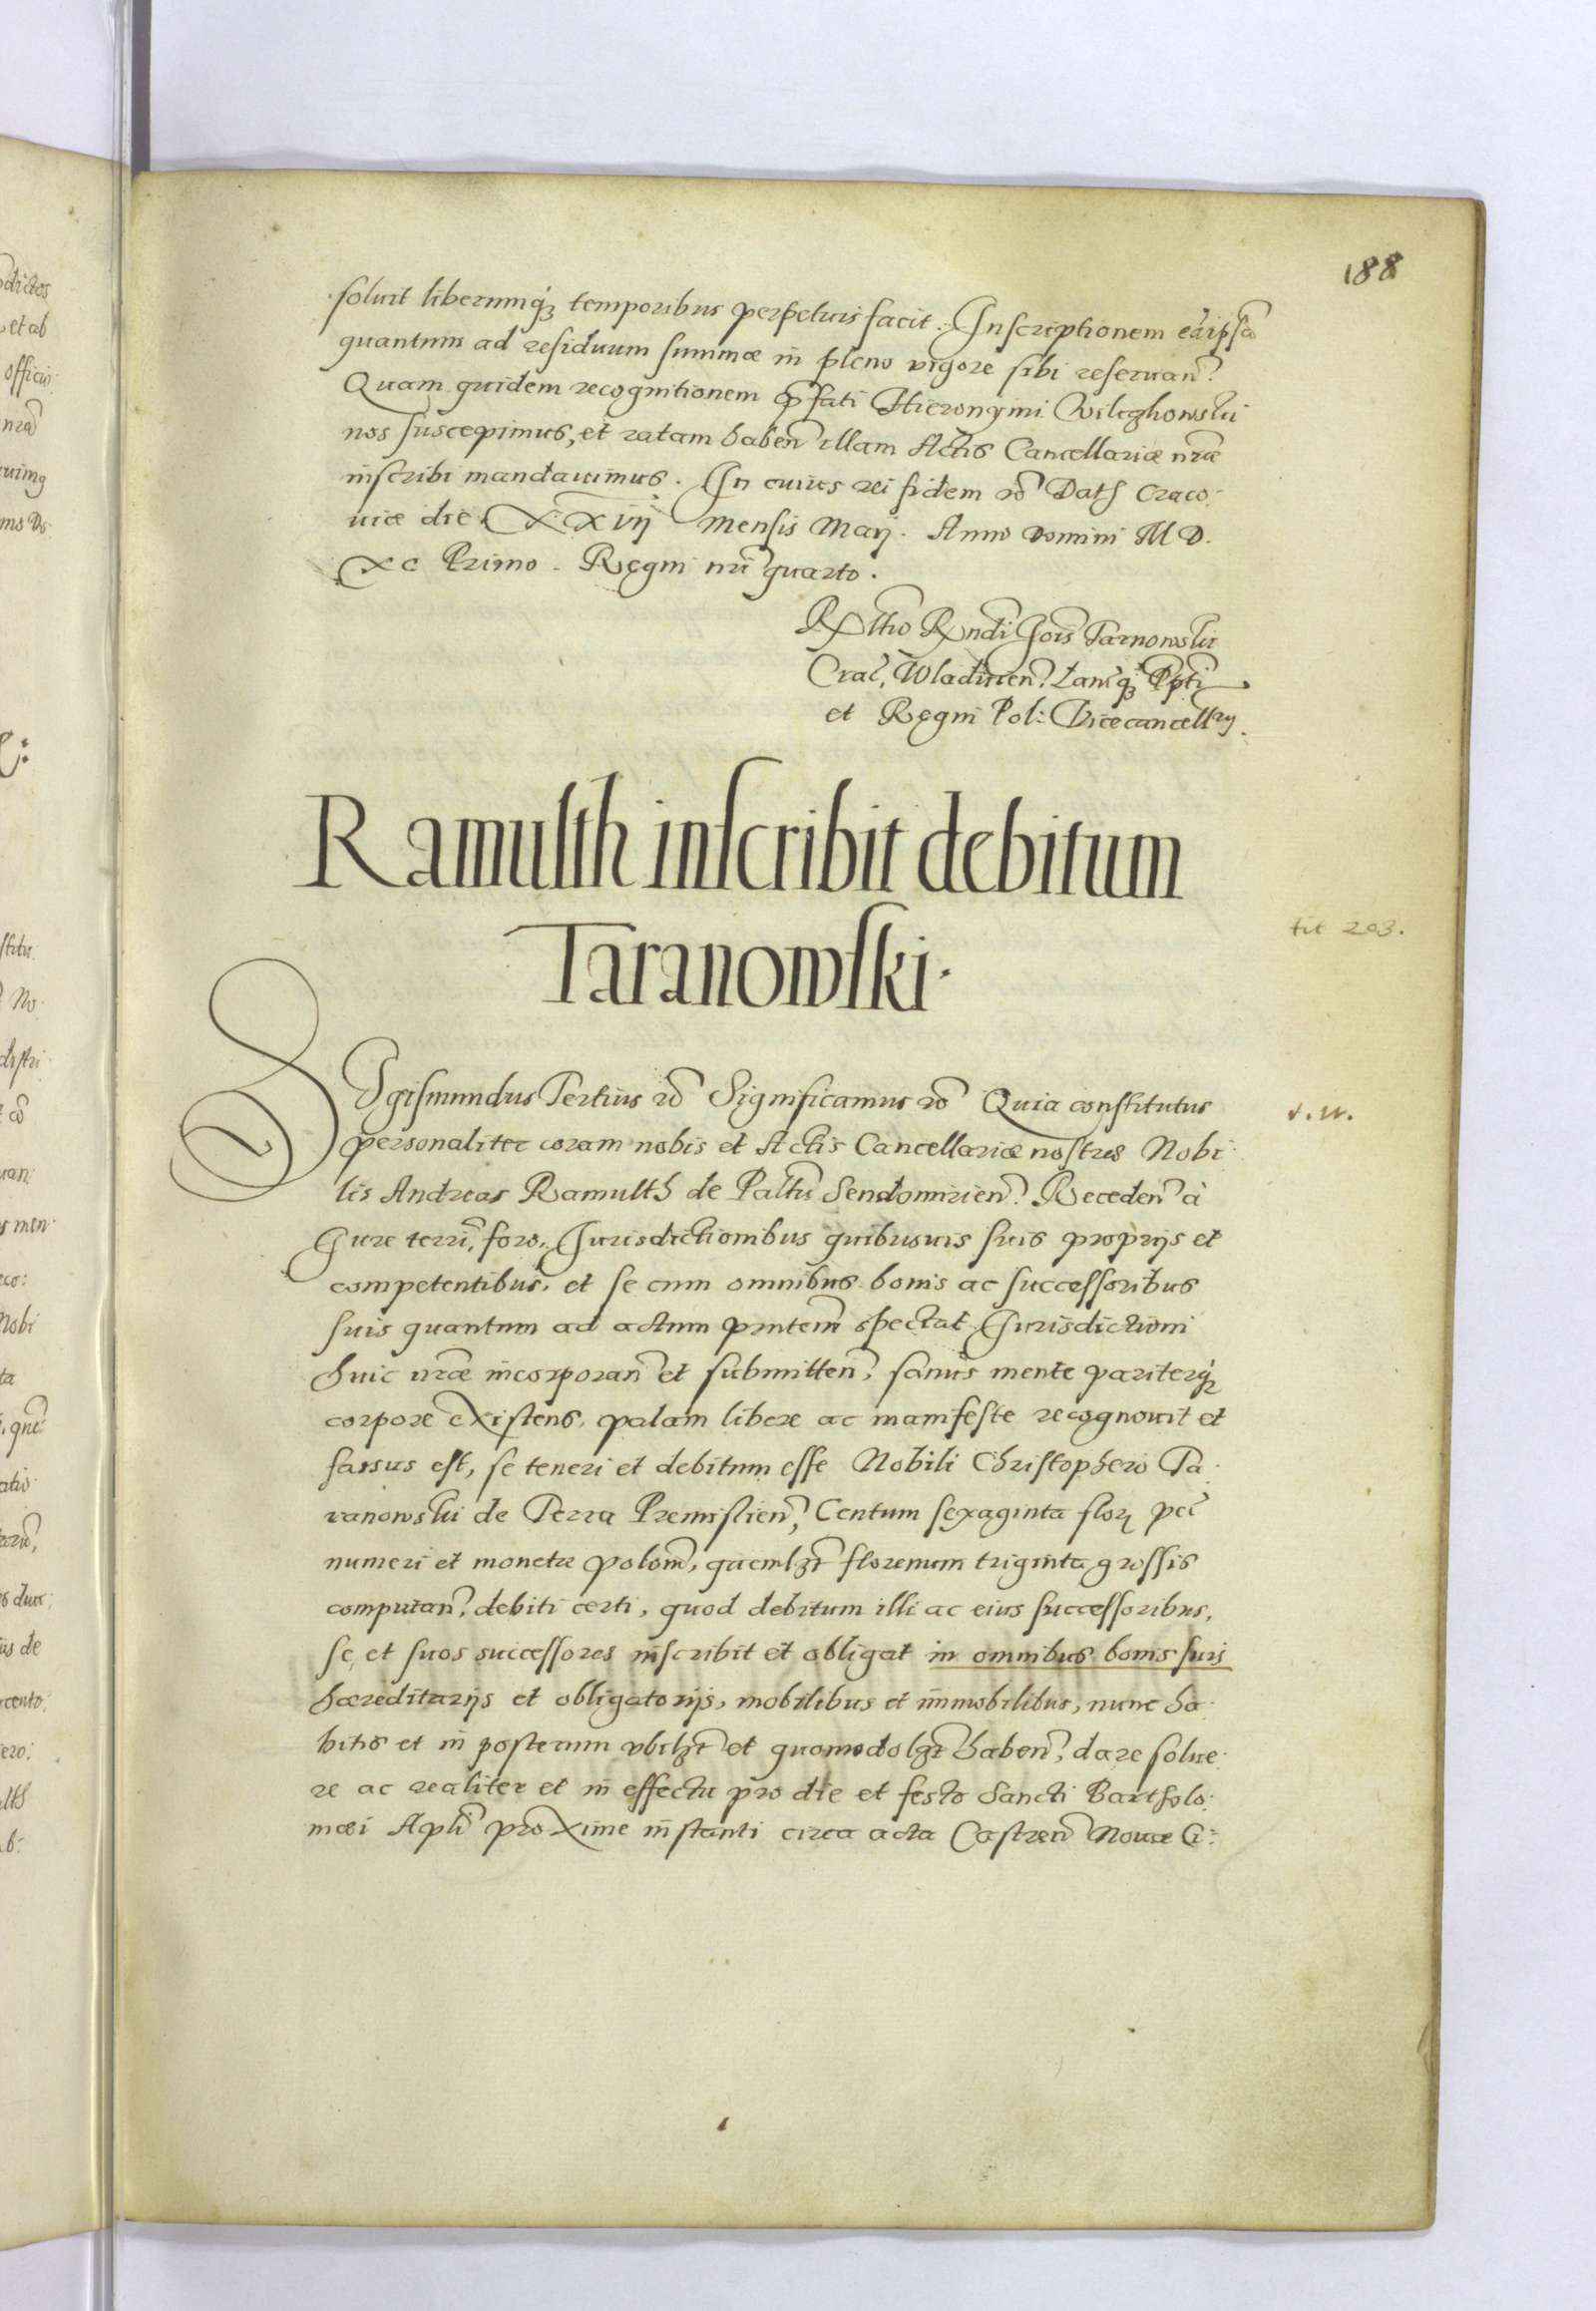 188
soluit liberumq̃ temporibus perpetuis facit. Inscriptionem eãipsã
quantum ad residuum summæ in pleno vigore sibi reseruañ.
Quam quidem recognitionem p̃fati Hieronymi
nos suscepimus, et ratam habeñ illam Actis Cancellariæ nr̃æ
inscribi mandauimus. In cuius rei fidem Craco:
uiæ die XXVII mensis Maij. Anno Domini M D.
XC Primo. Regni nr̃i quarto.
R̃ltio Rñdi Jois Tarnowski
Crac̃, Wladiuieñ. Lanc̃q̃ Pp̃ti
et Regni Pol: Vicecancellrij.
Ramulth inscribit debitum
Taranowski.
tit 203.
Sigismundus Tertius Significamus Quia constitutus
v. w.
personaliter coram nobis et Actis Cancellariæ nostræ Nobi
lis Andreas Ramulth de Paltũ Sendomirieñ. Recedeñ à
Jure terri,̃ foro, Jurisdictionibus quibusuis suis proprijs et
competentibus, et se cum omnibus bonis ac successoribus
suis quantum ad actum pñtem spectat Jurisdictioni
huic nr̃æ incorporañ et submitteñ, sanus mente pariterq̃
corpore existens, palam libere ac manifeste recognouit et
fassus est, se teneri et debitum esse Nobili Christophero Ta
ranowski de Terra Premislieñ, Centum sexaginta flor. pec̃
numeri et monetæ poloñ, florenum triginta grossis
computañ, debiti certi, quod debitum illi ac eius successoribus,
se et suos successores inscribit et obligat in omnibus bonis suis
hæreditarijs et obligatorijs, mobilibus et immobilibus, nunc ha
bitis et in posterum vbilz̃t et quomodolz̃t habeñ, dare solue
re ac realiter et in effectu pro die et festo Sancti Bartholo:
mæi Apl̃i proxime instanti circa acta Castreñ Nouæ Ci: